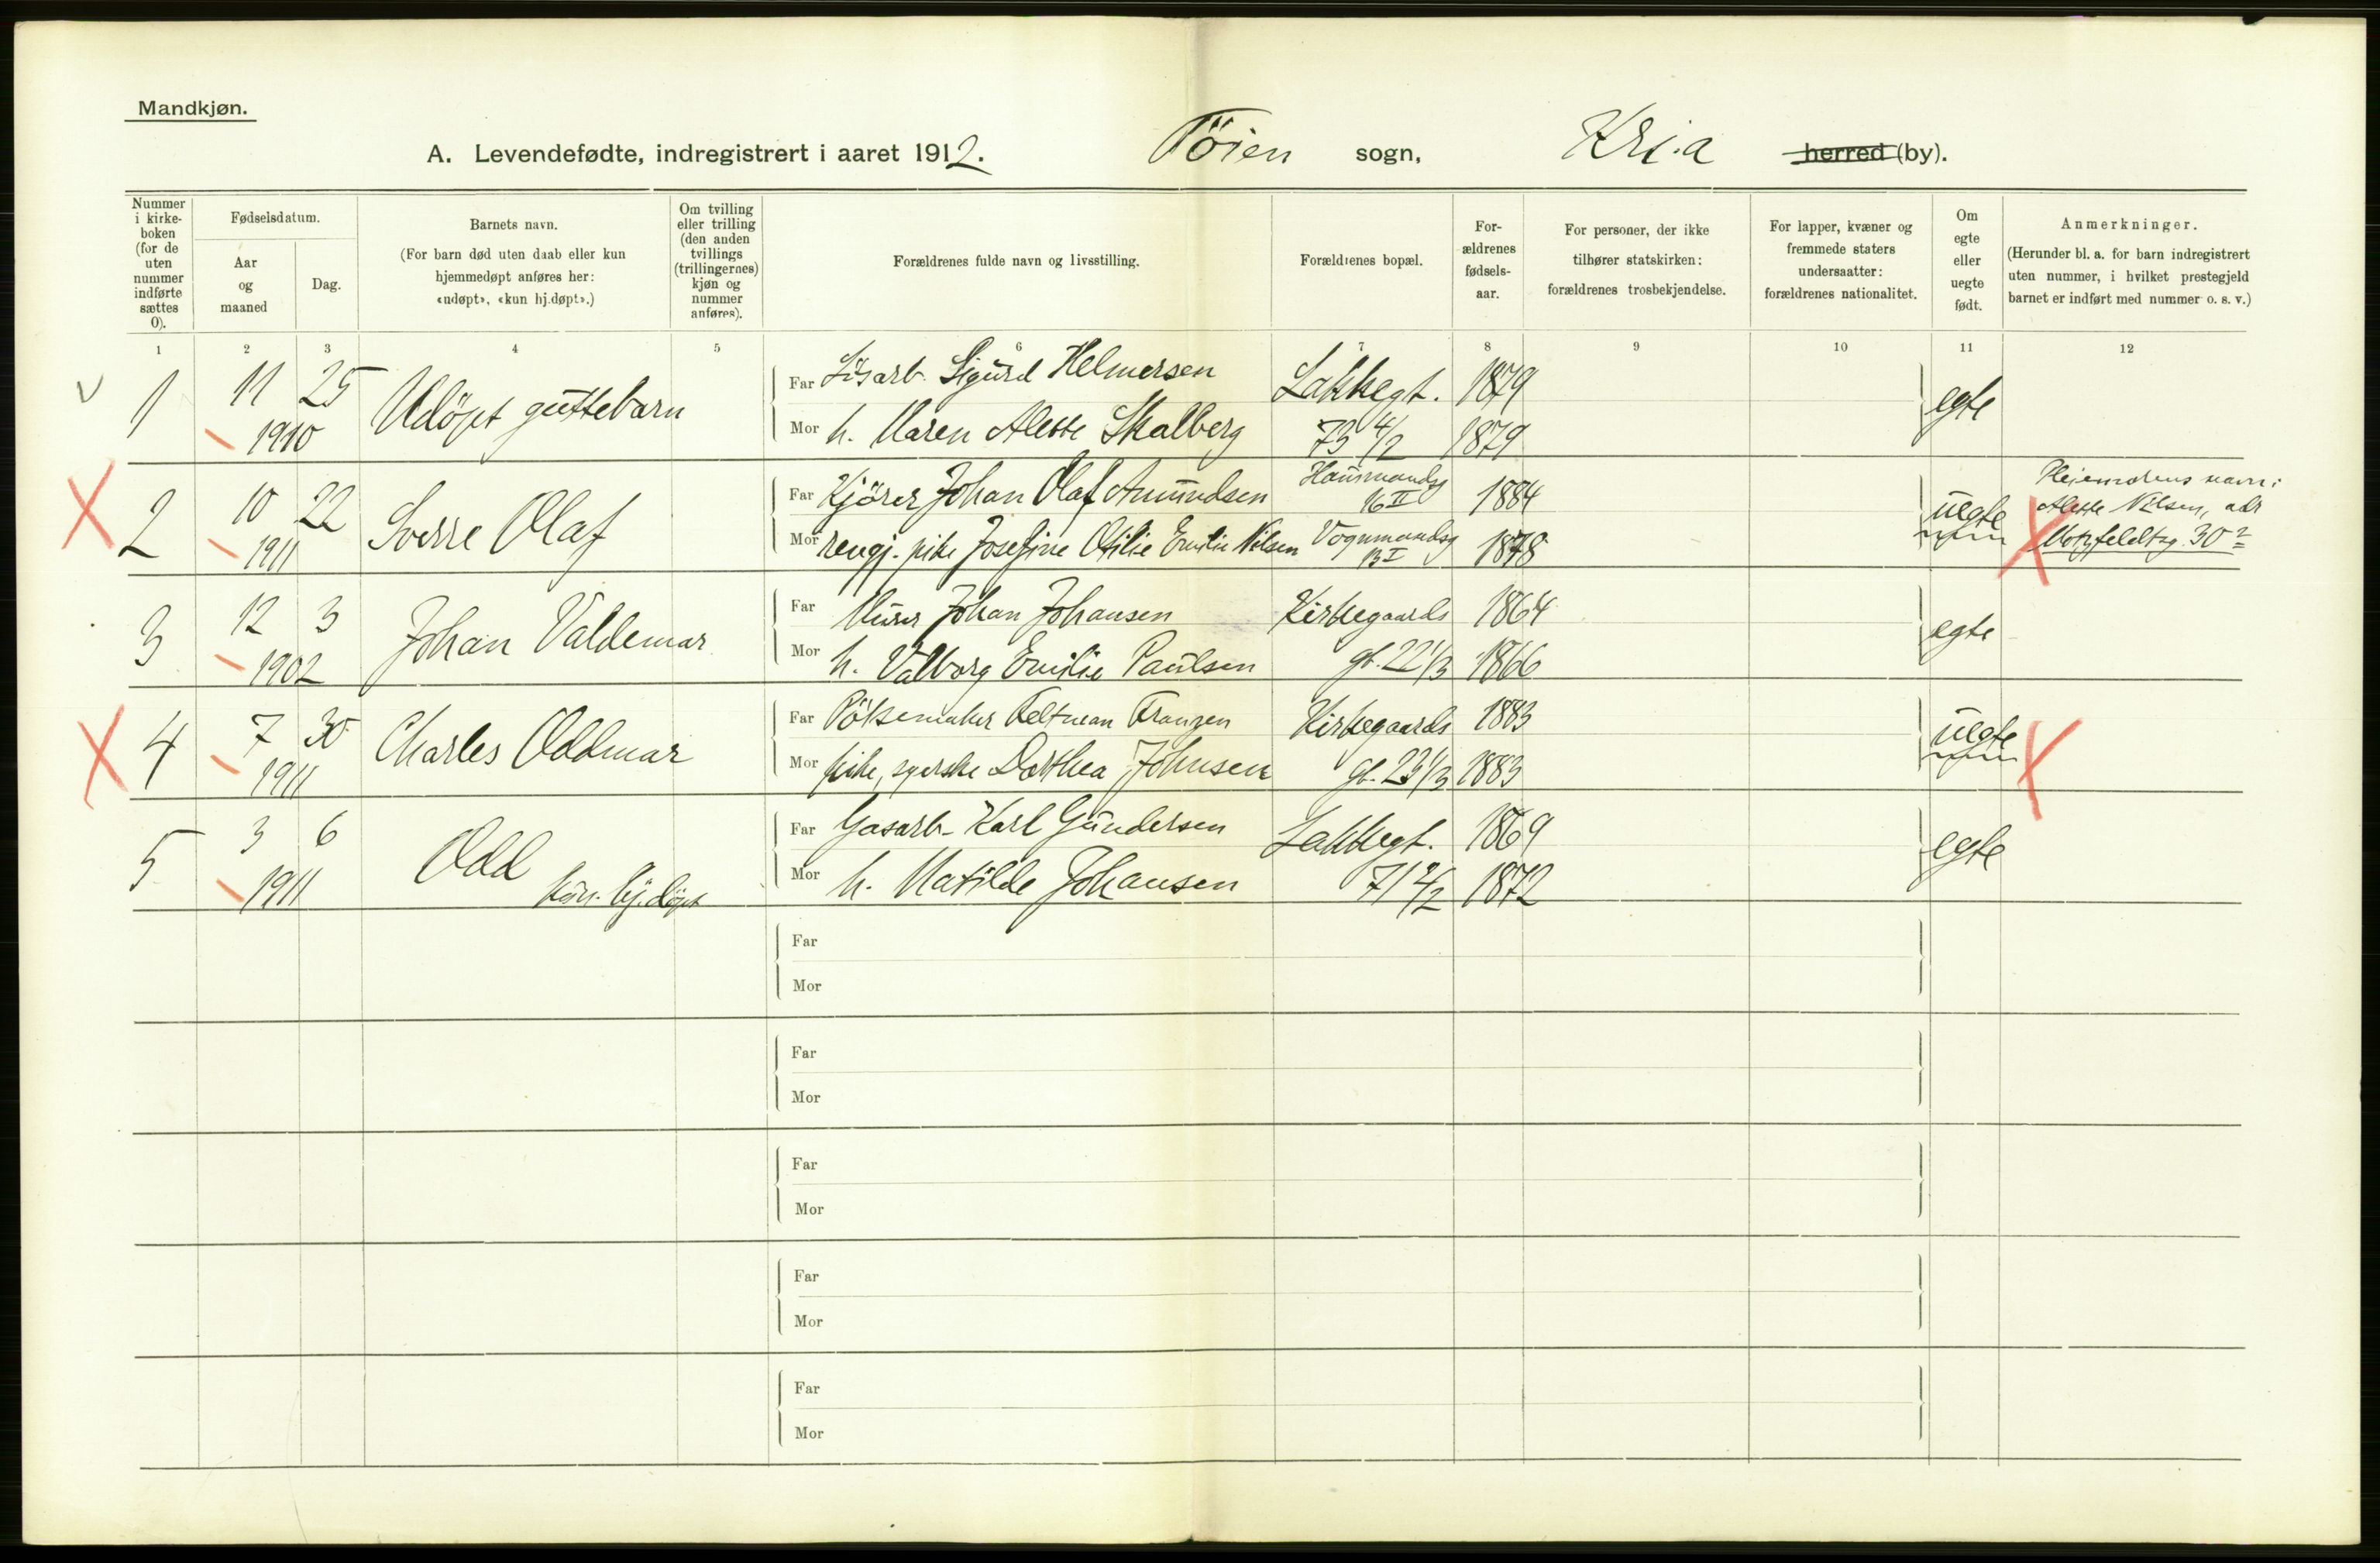 Mandkjøn.
A. Levendefødte, indregistrert i aaret 1912. Töien sogn, Kr.i.a herred (by).
Nummer i kirke-boken (for de uten nummer indførte sættes 0).
Fødselsdatum.
Aar og maaned
Dag.
Barnets navn.
(For barn død uten daab eller kun
hjemmedøpt anføres her:
«udøpt», «kun hj.døpt».)
Om tvilling
eller trilling
(den anden
tvillings
(trillingernes)
kjøn og
nummer
anføres).
Forældrenes fulde navn og livsstilling.
Forældrenes bopæl.
For-
ældrenes
fødsels-
aar.
For personer, der ikke
tilhører statskirken:
forældrenes trosbekjendelse.
For lapper, kvæner og
fremmede staters
undersaatter:
forældrenes nationalitet.
Om
egte
eller
uegte
født.
Anmerkninger.
(Herunder bl. a. for barn indregistrert
uten nummer, i hvilket prestegjeld
barnet er indført med nummer o. s. v.)
1 2 3 4 5 6 7 8 9 10 11 12
1 11 25 Udöpt guttebarn Far Sigurd Helmersen Lakkegt. 1879 egte
1910 Mor h. Maren Alette Skalberg 73 4/2 1879
2 10 22 Sverre Olaf Far Kjörer Johan Olaf Amundsen Hausmandsg 16 II 1884 uegte Pleiemorens navn:
Alette Nilsen, adr
1911 Mor rengj. pike Josefine Otilie Emilie Nilsen Vognmandsg 13 I 1878 Motzfeldtsg. 30 2
3 12 3 Johan Valdemar Far Murer Johan Johansen Kirkegaards 1864 egte
1902 Mor h. Valborg Emilie Paulsen gt. 22 1/3 1866
4 7 30 Charles Oddmar Far Pölsemaker Feltman Franzen Kirkegaards 1883 uegte
1911 Mor pike, syerske Dorthea Johnsen gt. 23 1/3 1883
5 3 6 Odd Far Gasarb. Karl Gundersen Lakkegt. 1869 egte
1911 kun. hj. döpt Mor h. Matilde Johansen 71 4/2 1872
Far
Mor
Far
Mor
Far
Mor
Far
Mor
Far
Mor